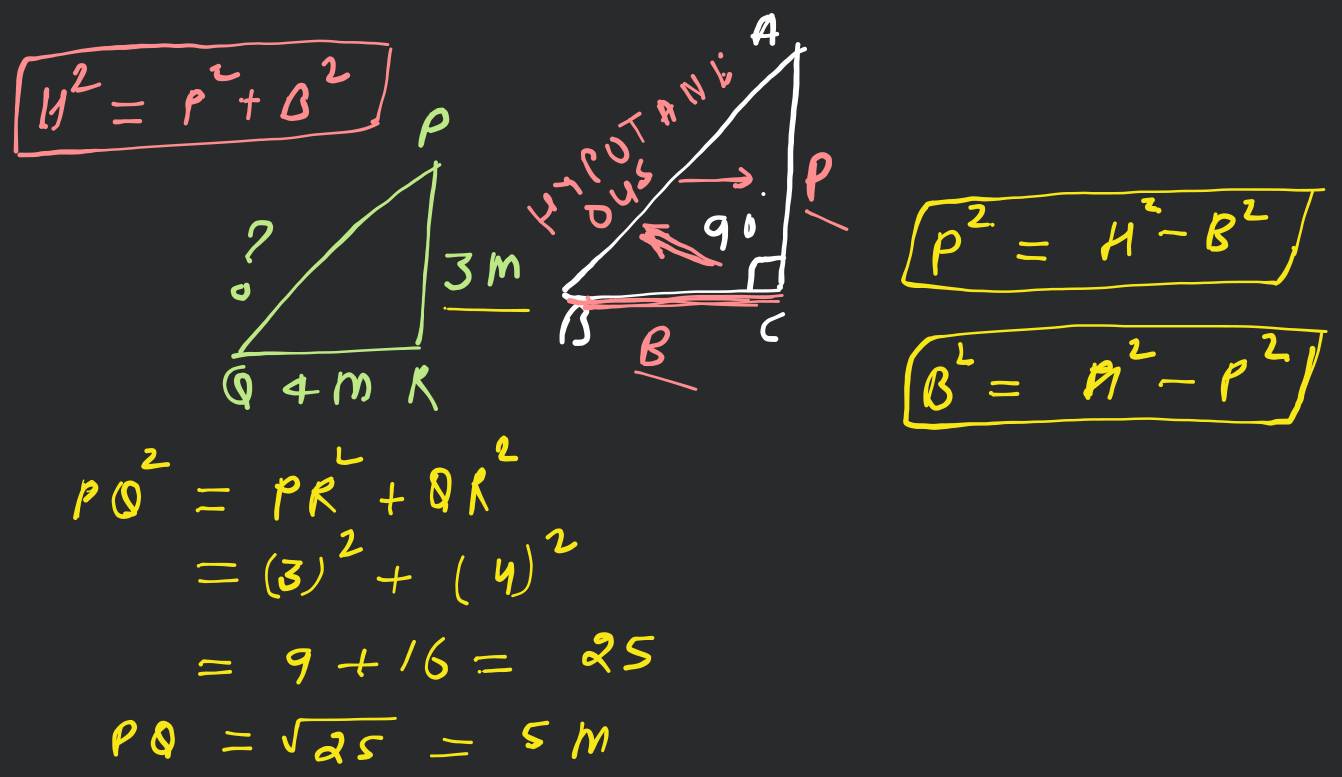 H² = P² + B²
P
?
3 m
Q 4 m R
A
HYPOTAN
OUS
P
90
B C
B
P² = H² - B²
B² = H² - P²
PQ² = PR² + QR²
= (3)² + (4)²
= 9 + 16 = 25
PQ = √25 = 5 m